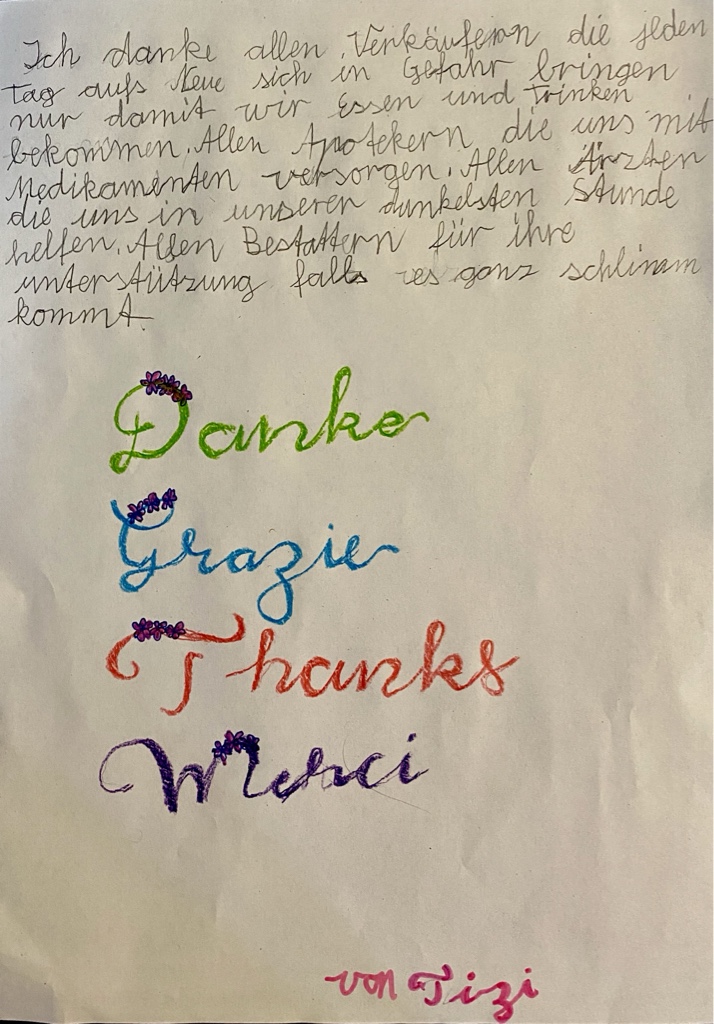 Ich danke allen Verkäufern die jeden
Tag aufs Neue sich in Gefahr bringen
nur damit wir Essen und Trinken
bekommen. Allen Apotekern die uns mit
Medikamenten versorgen. Allen Ärzten
die uns in unserer dunkelsten Stunde
helfen. Allen Bestattern für ihre
unterstützung falls es ganz schlimm
kommt.
Danke
Grazie
Thanks
Merci
von Tizi